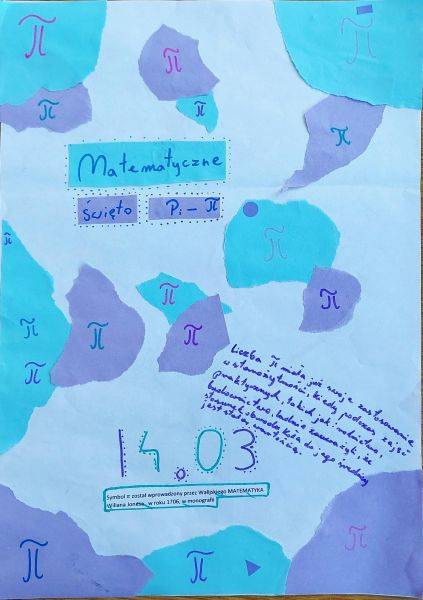 π
π
π
π
π
π
Matematyczne
święto Pi - π
π
π
π
π
π
π
π
π
Liczba π miała już swoje zastosowanie
w starożytności, kiedy podczas zajęć
praktycznych, takich jak: rolnictwo,
budownictwo, ludzie zauważyli, że
stosunek obwodu koła do jego średnicy
jest stałą wartością.
14.03
Symbol π został wprowadzony przez Walijskiego MATEMATYKA
Wiliana Jonesa, w roku 1706, w monografii
π
π
π